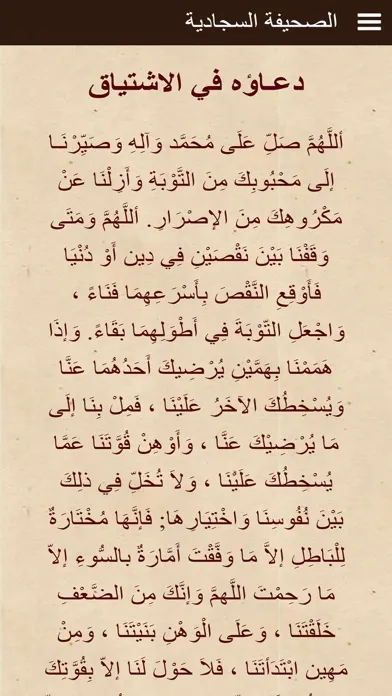 الصحيفة السجادية
دعـاؤه في الاشتياق
أللَّهُمَّ صَلِّ عَلَى مُحَمَّد وَآلِهِ وَصَيِّرْنَـا
إلَى مَحْبُوبِكَ مِنَ التَّوْبَةِ وَأَزِلْنَا عَنْ
مَكْرُوهِكَ مِنَ الإصْرَارِ. أللَّهُمَّ وَمَتَى
وَقَفْنَا بَيْنَ نَقْصَيْنِ فِي دِين أَوْ دُنْيَا
فَأَوْقِعِ النَّقْصَ بِأَسْرَعِهِمَا فَنَاءً ،
وَاجْعَلِ التّوْبَةَ فِي أَطْوَلِهِمَا بَقَاءً. وَإذَا
هَمَمْنَا بِهَمَّيْنِ يُرْضِيكَ أَحَدُهُمَا عَنَّا
وَيُسْخِطُكَ الآخَرُ عَلَيْنَا ، فَمِلْ بِنَا إلَى
مَا يُرْضِيْكَ عَنَّا ، وَأَوْهِنْ قُوَّتَنَا عَمَّا
يُسْخِطُكَ عَلَيْنَا ، وَلاَ تُخَلِّ فِي ذلِكَ
بَيْنَ نُفُوسِنَا وَاخْتِيَارِهَا; فَإنَّهَا مُخْتَارَةٌ
لِلْبَاطِلِ إلاَّ مَا وَفَّقْتَ أَمَّارَةٌ بالسُّوءِ إلاّ
مَا رَحِمْتَ اللَّهمَّ وَإنَّكَ مِنَ الضَّعْفِ
خَلَقْتَنَا ، وَعَلَى الْوَهْنِ بَنَيْتَنَا ، وَمِنْ
مَهِين ابْتَدَأتَنَا ، فَلاَ حَوْلَ لَنَا إلاّ بِقُوَّتِكَ